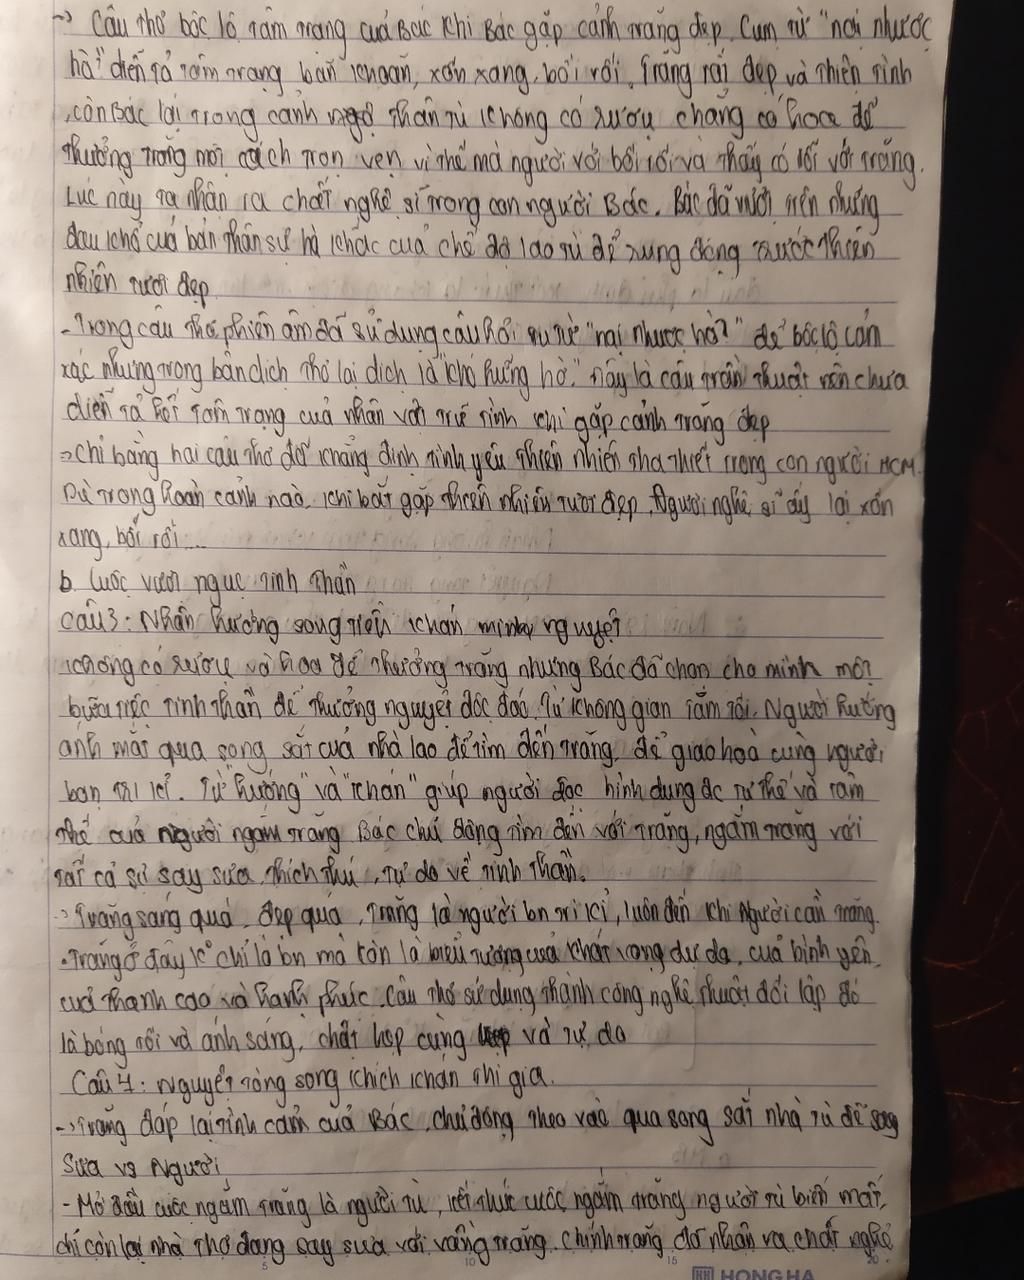 -> Câu thơ bộc lộ tâm trạng của Bác khi Bác gặp cảnh trăng đẹp. Cụm từ "nại nhược
hà" diễn tả tâm trạng băn khoăn, xốn xang, bối rối. Trăng rất đẹp và thiên tình
, còn Bác lại trong cảnh ngộ thân tù không có rượu chẳng có hoa để
thưởng trăng một cách trọn vẹn vì thế mà người với bối rối và thấy có lỗi với trăng.
Lúc này ta nhận ra chất nghệ sĩ trong con người Bác. Bác đã vượt trên những
đau khổ của bản thân sự hà khắc của chế độ lao tù để rung động trước thiên
nhiên tươi đẹp
- Trong câu thơ phiên âm đã sử dụng câu hỏi tu từ "nại nhược hà?" để bộc lộ cảm
xác nhưng trong bản dịch thơ lại dịch là "khó hững hờ." Đây là câu trần thuật nên chưa
diễn tả hết tâm trạng của nhân vật trữ tình khi gặp cảnh trăng đẹp
=> Chỉ bằng hai câu thơ đã khẳng định tình yêu thiên nhiên tha thiết trong con người HCM.
Dù trong hoàn cảnh nào, khi bắt gặp thiên nhiên tươi đẹp, Người nghệ sĩ ấy lại xốn
xang, bối rối....
b. Cuộc vượt ngục tinh thần
Câu 3: Nhân hướng song tiền khán minh nguyệt
Không có rượu và hoa để thưởng trăng nhưng Bác đã chọn cho mình một
bữa tiệc tinh thần để thưởng nguyệt độc đáo. Từ không gian tăm tối, Người hướng
ánh mắt qua song sắt của nhà lao để tìm đến trăng, để giao hoà cùng người
bạn tri kỉ. Từ "hướng" và "khán" giúp người đọc hình dung đc tư thế và tâm
thế của người ngắm trăng Bác chủ động tìm đến với trăng, ngắm trăng với
tất cả sự say sưa, thích thú, tự do về tinh thần.
-> Trăng sáng quá, đẹp quá, trăng là người bn tri kỉ, luôn đến khi Người cần trăng.
- Trăng ở đây k chỉ là bn mà còn là biểu tượng của khát vọng dự do, của bình yên,
của thanh cao và hạnh phúc. Câu thơ sử dụng thành công nghệ thuật đối lập đó
là bóng tối và ánh sáng, chật hẹp cùng và tự do
Câu 4: Nguyệt tòng song khích khán thi gia.
-> Trăng đáp lại tình cảm của Bác, chủ động theo vào qua song sắt nhà tù để say
sưa vs Người
- Mở đầu cuộc ngắm trăng là người tù, kết thúc cuộc ngắm trăng người tù biến mất,
chỉ còn lại nhà thơ đang say sưa với vầng trăng. Chính trăng đã nhận ra chất nghệ
5 10 15 20
HH HONG HA